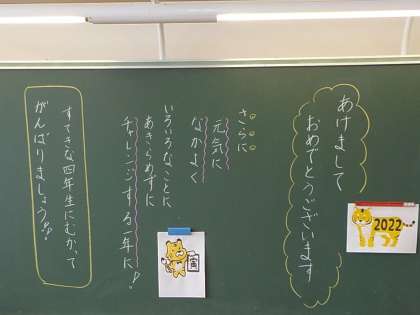 あけまして
おめでとうございます
2022
さらに
元気に
なかよく
いろいろなことに
あきらめずに
チャレンジする一年に!
寅
すてきな四年生にむかって
がんばりましょう!!